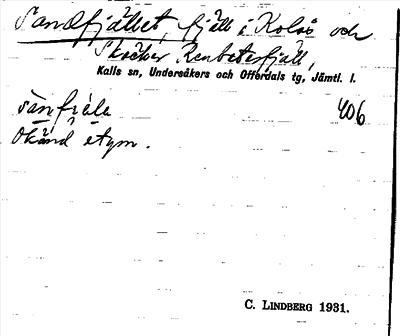 Sandfjället, fjäll i Kolås och
Skäcker Renbetesfjäll,
Kalls sn, Undersåkers och Offerdals tg, Jämtl. l.
sänfiälə 406
Okänd etym.
C. LINDBERG 1931.